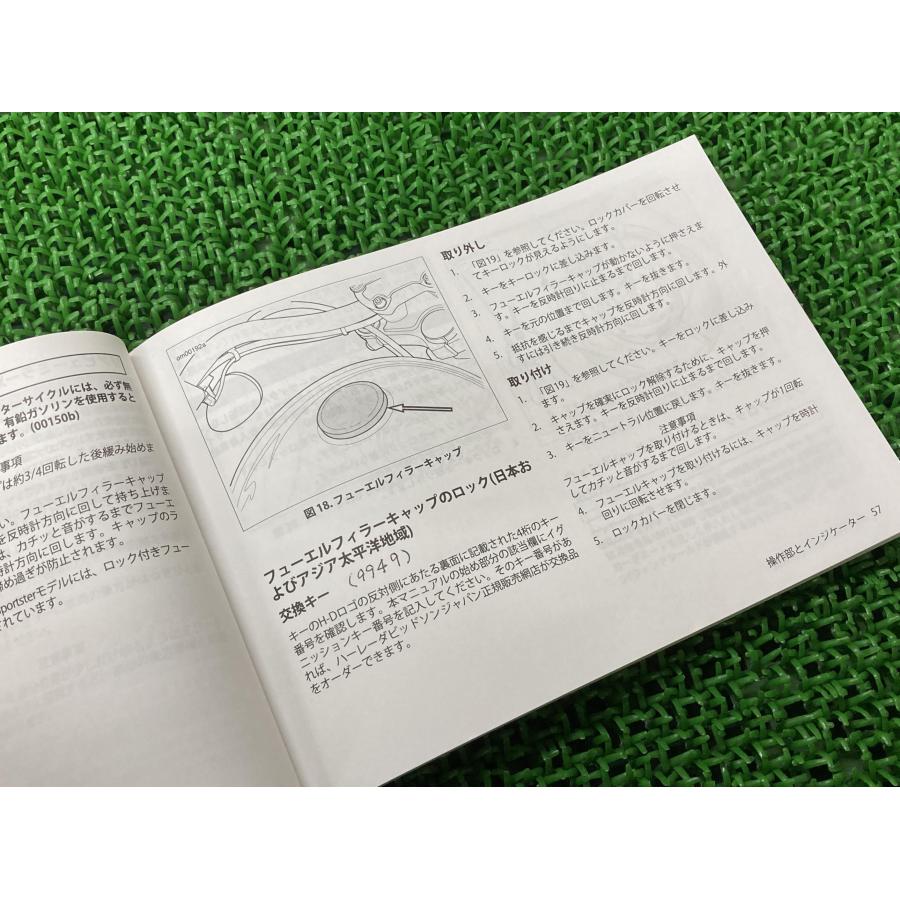 ターサイクルには、必ず無
有鉛ガソリンを使用すると
ます。(00150b)
事項
は約3/4回転した後緩み始めま
い。フューエルフィラーキャップ
を反時計方向に回して持ち上げま
は、カチッと音がするまでフューエ
時計方向に回します。キャップのラ
締め過ぎが防止されます。
portsterモデルには、ロック付きフュー
されています。
om00192a
図 18. フューエルフィラーキャップ
フューエルフィラーキャップのロック(日本お
よびアジア太平洋地域)
交換キー (9949)
キーのH-Dロゴの反対側にあたる裏面に記載された4桁のキー
番号を確認します。本マニュアルの始め部分の該当欄にイグ
ニッションキー番号を記入してください。そのキー番号があ
れば、ハーレーダビッドソンジャパン正規販売網店が交換品
をオーダーできます。
取り外し
1. 「図19」を参照してください。ロックカバーを回転させ
てキーロックが見えるようにします。
2. キーをキーロックに差し込みます。
3. フューエルフィラーキャップが動かないように押さえま
す。キーを反時計回りに止まるまで回します。
4. キーを元の位置まで回します。キーを抜きます。
5. 抵抗を感じるまでキャップを反時計方向に回します。外
すには引き続き反時計方向に回します。
取り付け
1. 「図19」を参照してください。キーをロックに差し込み
ます。
2. キャップを確実にロック解除するために、キャップを押
さえます。キーを反時計回りに止まるまで回します。
3. キーをニュートラル位置に戻します。キーを抜きます。
注意事項
フューエルキャップを取り付けるときは、キャップが1回転
してカチッと音がするまで回します。
4. フューエルキャップを取り付けるには、キャップを時計
回りに回転させます。
5. ロックカバーを閉じます。
操作部とインジケーター 57